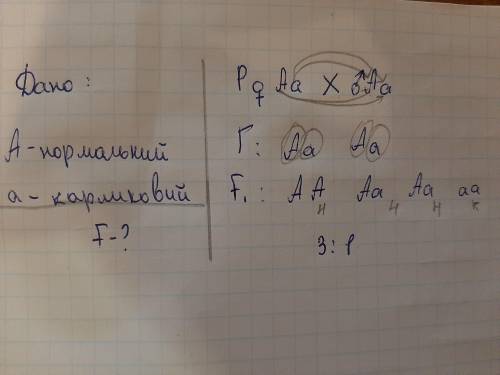 Дано:
А - нормальний
а - карликовий
F - ?
P ♀ Aa × ♂ Aa
Г: A a A a
F₁: AA Aa Aa aa
н н н к
3:1